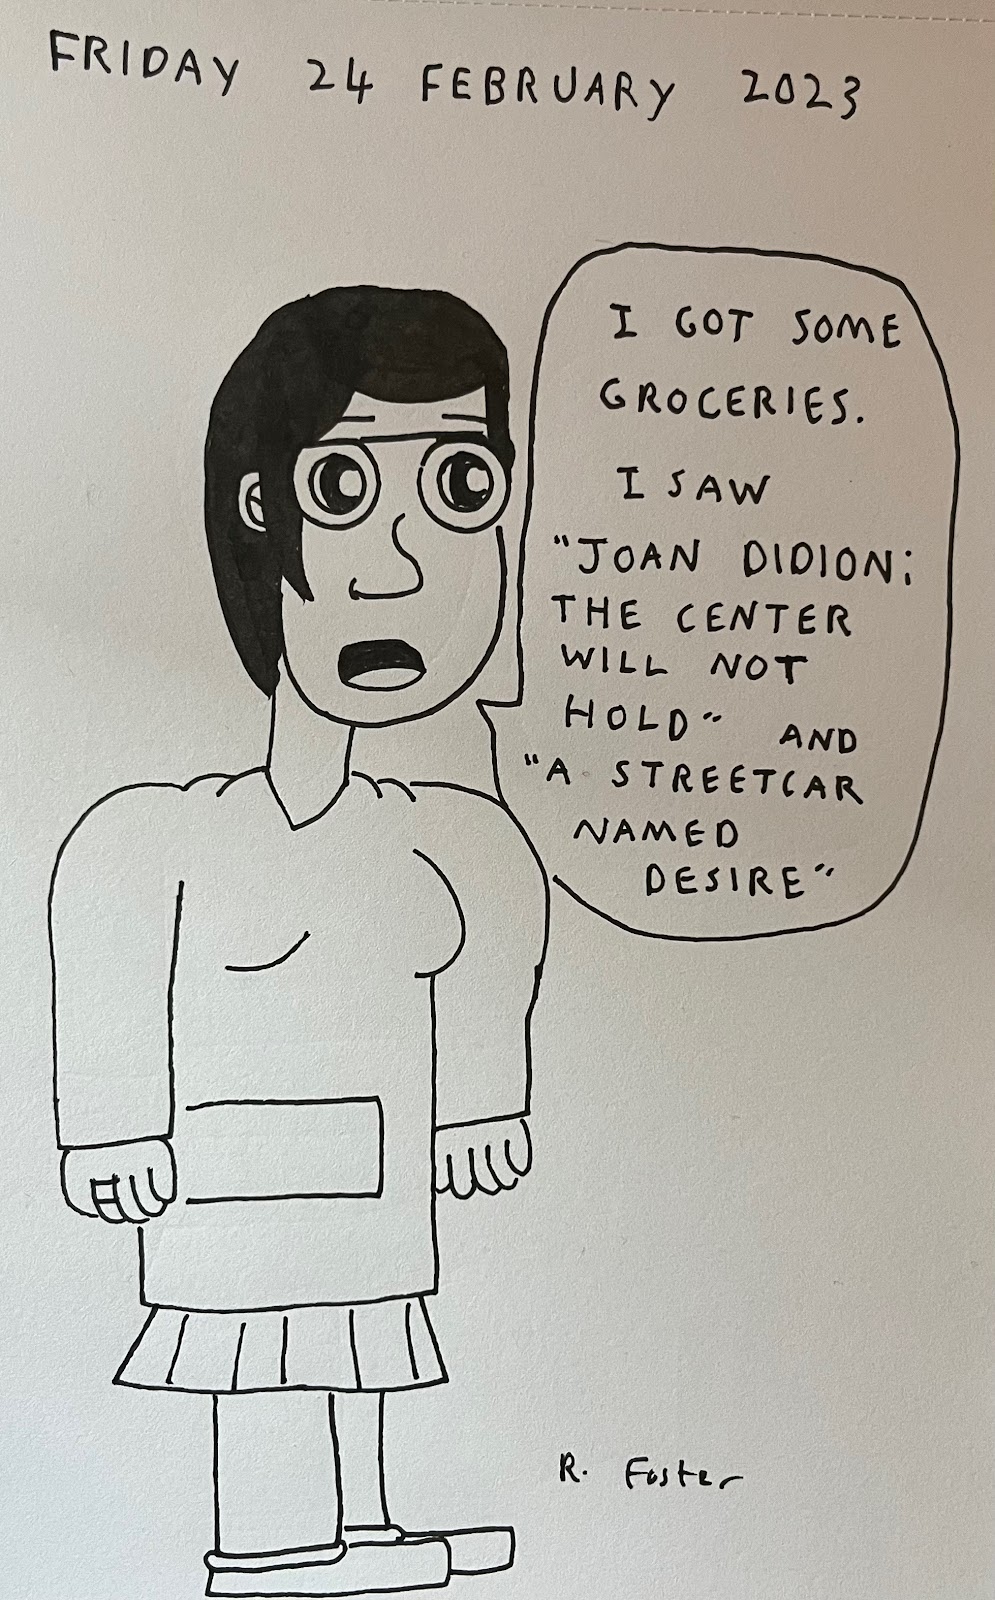 FRIDAY 24 FEBRUARY 2023
I GOT SOME
GROCERIES.
I SAW
"JOAN DIDION;
THE CENTER
WILL NOT
HOLD" AND
"A STREETCAR
NAMED
DESIRE"
R. Foster